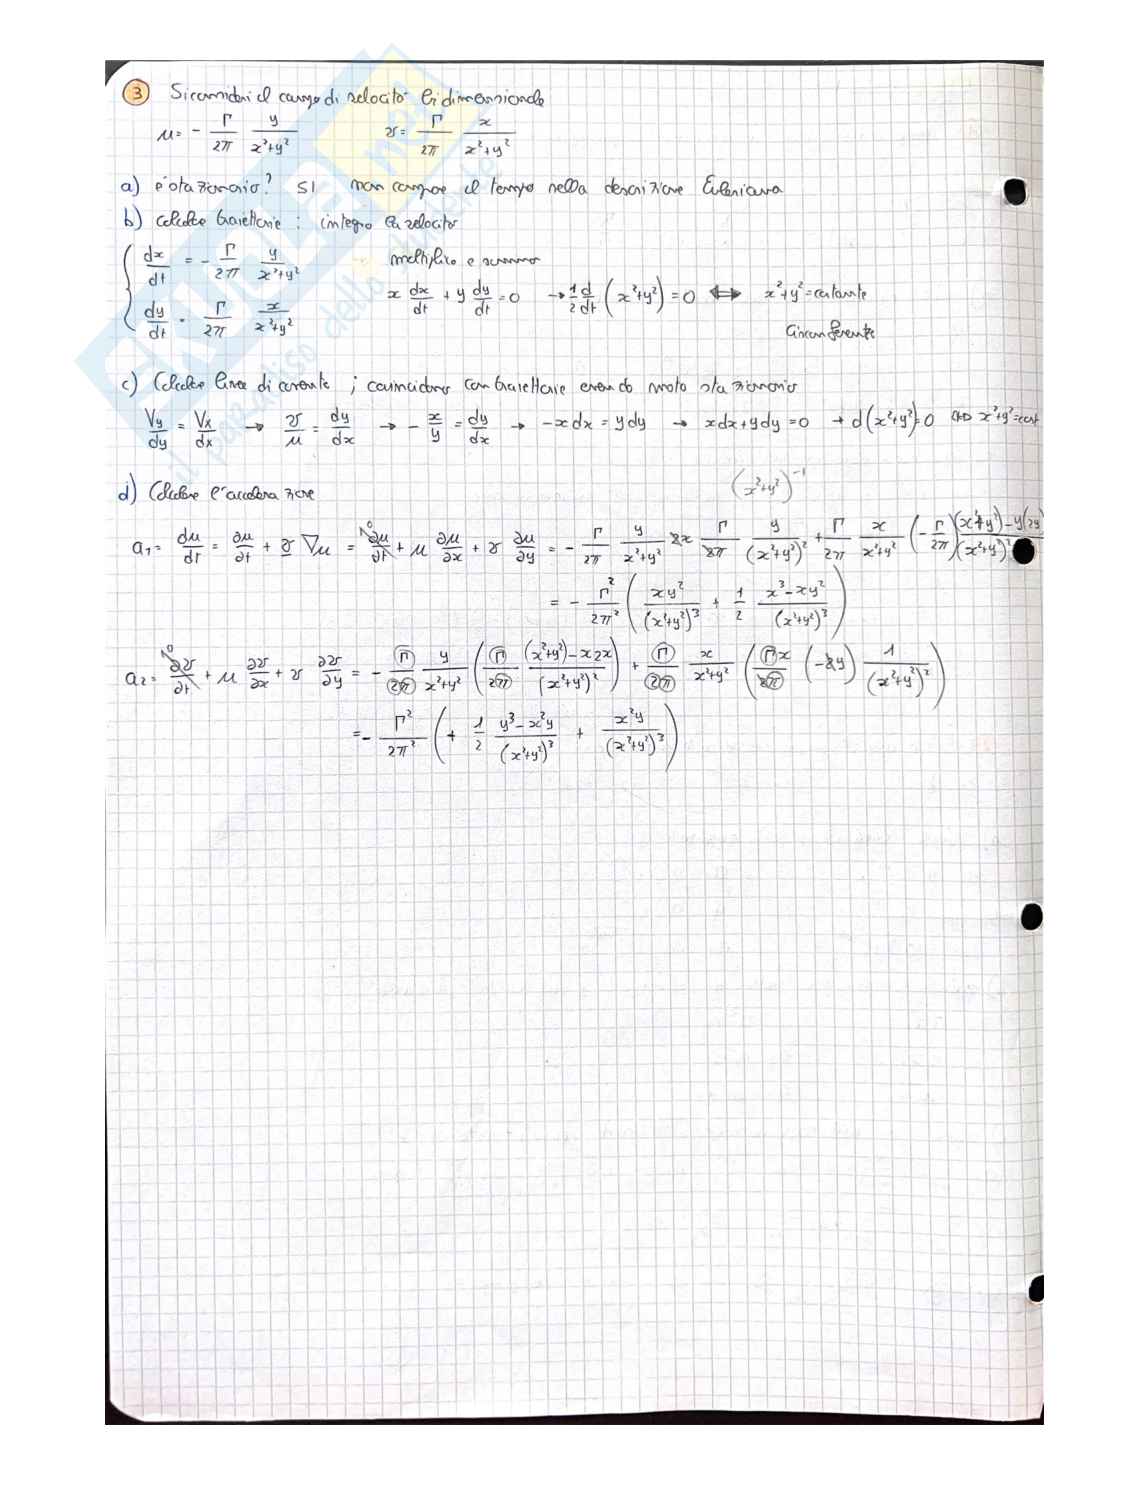 3 Si consideri il campo di velocità bidimensionale
u = - Γ/2π y/(x²+y²)    v = Γ/2π x/(x²+y²)
a) è stazionario? SI non compare il tempo nella descrizione Euleriana
b) calcolare traiettorie : integro la velocità
{ dx/dt = - Γ/2π y/(x²+y²)    moltiplico e sommo
dy/dt = Γ/2π x/(x²+y²)    x dx/dt + y dy/dt = 0 → 1/2 d/dt (x²+y²) = 0 ⟺ x²+y² = costante
Circonferenze
c) Calcolare linee di corrente ; coincidono con traiettorie essendo moto stazionario
Vy/dy = Vx/dx → v/u = dy/dx → - x/y = dy/dx → -x dx = y dy → x dx + y dy = 0 → d(x²+y²) = 0 ⟺ x²+y² = cost
(x²+y²)⁻¹
d) Calcolare l'accelerazione
a₁ = du/dt = ∂u/∂t + v ∇u = ∂u/∂t 0 + u ∂u/∂x + v ∂u/∂y = - Γ/2π y/(x²+y²) 2x Γ/2π y/(x²+y²)² + Γ/2π x/(x²+y²) (- Γ/2π (x²+y²) - y(2y)/(x²+y²)²
= - Γ²/2π² ( xy²/(x²+y²)³ + 1/2 x³-xy²/(x²+y²)³ )
a₂ = ∂v/∂t 0 + u ∂v/∂x + v ∂v/∂y = - Γ/2π y/(x²+y²) ( Γ/2π (x²+y²) - x2x/(x²+y²)² ) + Γ/2π x/(x²+y²) ( Γx/2π (-2y) 1/(x²+y²)² )
= - Γ²/2π² ( + 1/2 y³-x²y/(x²+y²)³ + x²y/(x²+y²)³ )
SKUOLA.net
il paradiso dello studente